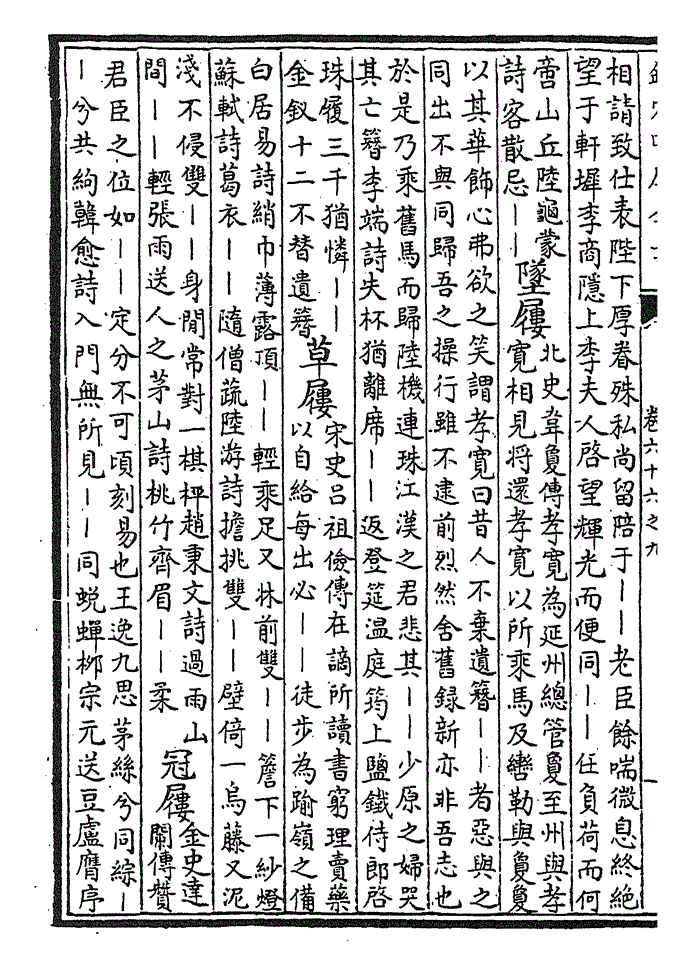 卷六十六之九
相請致仕表陛下厚眷殊私尚留陪于丨丨老臣餘喘微息終絕
望于軒墀李商隱上李夫人啓望輝光而便同丨丨任負荷而何
啻山丘陸龜蒙
詩客散忌丨丨
墜屨
北史韋夐傳孝寛為延州總管夐至州與孝
寛相見将還孝寛以所乗馬及轡勒與夐夐
以其華飾心弗欲之笑謂孝寛曰昔人不棄遺簮丨丨者惡與之
同出不與同歸吾之操行雖不逮前烈然舍舊録新亦非吾志也
於是乃乗舊馬而歸陸機連珠江漢之君悲其丨丨少原之婦哭
其亡簮李端詩失杯猶離席丨丨返登筵温庭筠上鹽鐵侍郎啓
珠履三千猶憐丨丨
金釵十二不替遺簮
草屨
宋史呂祖儉傳在謫所讀書窮理賣藥
以自給每出必丨丨徒步為踰嶺之備
白居易詩綃巾薄露頂丨丨輕乗足又牀前雙丨丨簷下一紗燈
蘇軾詩葛衣丨丨隨僧蔬陸游詩擔挑雙丨丨壁倚一烏藤又泥
淺不侵雙丨丨身閒常對一棋枰趙秉文詩過雨山
間丨丨輕張雨送人之茅山詩桃竹齊眉丨丨柔
冠屨
金史達
闌傳贊
君臣之位如丨丨定分不可頃刻易也王逸九思茅絲兮同綜丨
丨兮共絇韓愈詩入門無所見丨丨同蛻蟬栁宗元送豆盧膺序